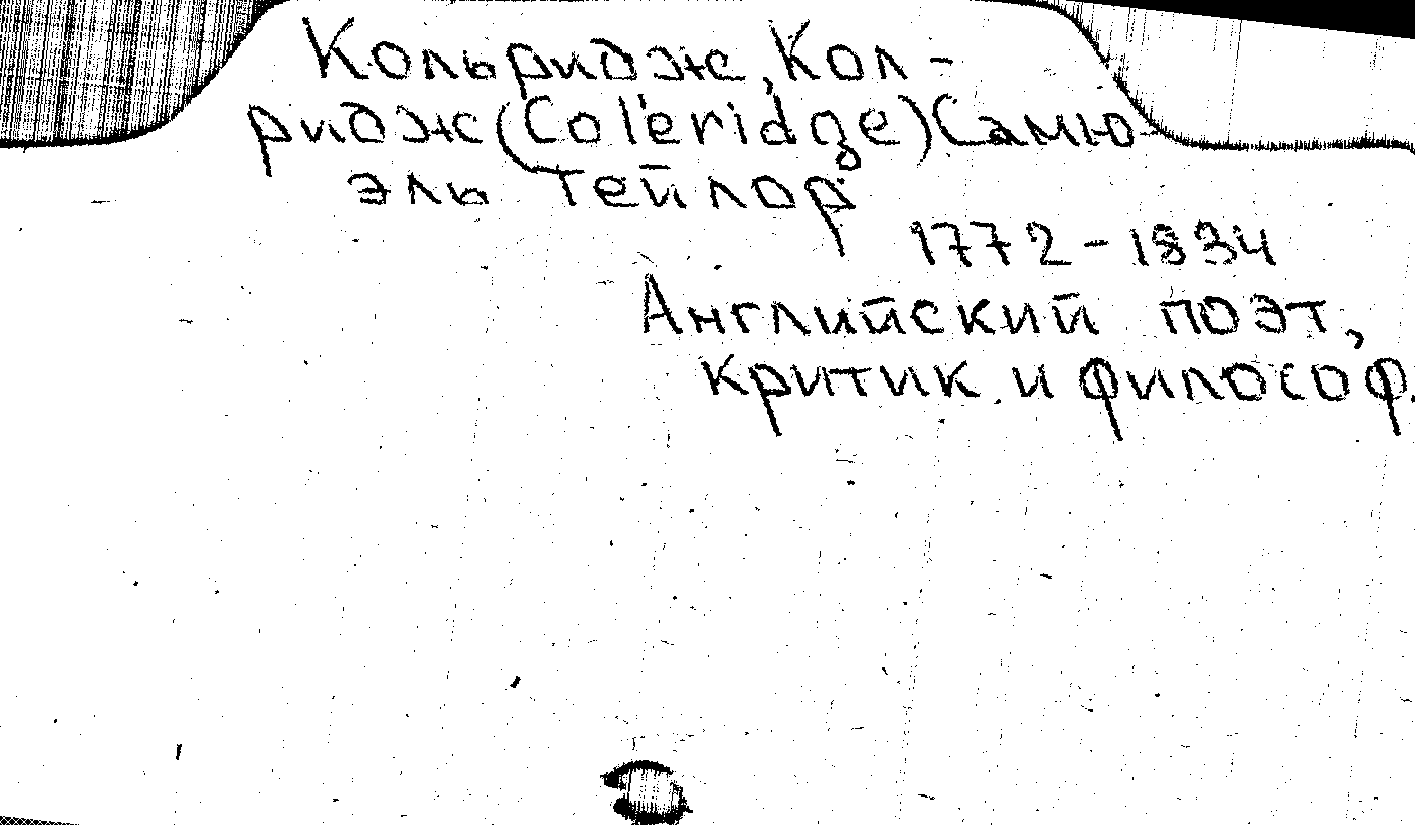 Кольридж, Кол-
ридж (Coleridge) Самю-
эль Тейлор
1772-1834
Английский поэт,
критик и философ.